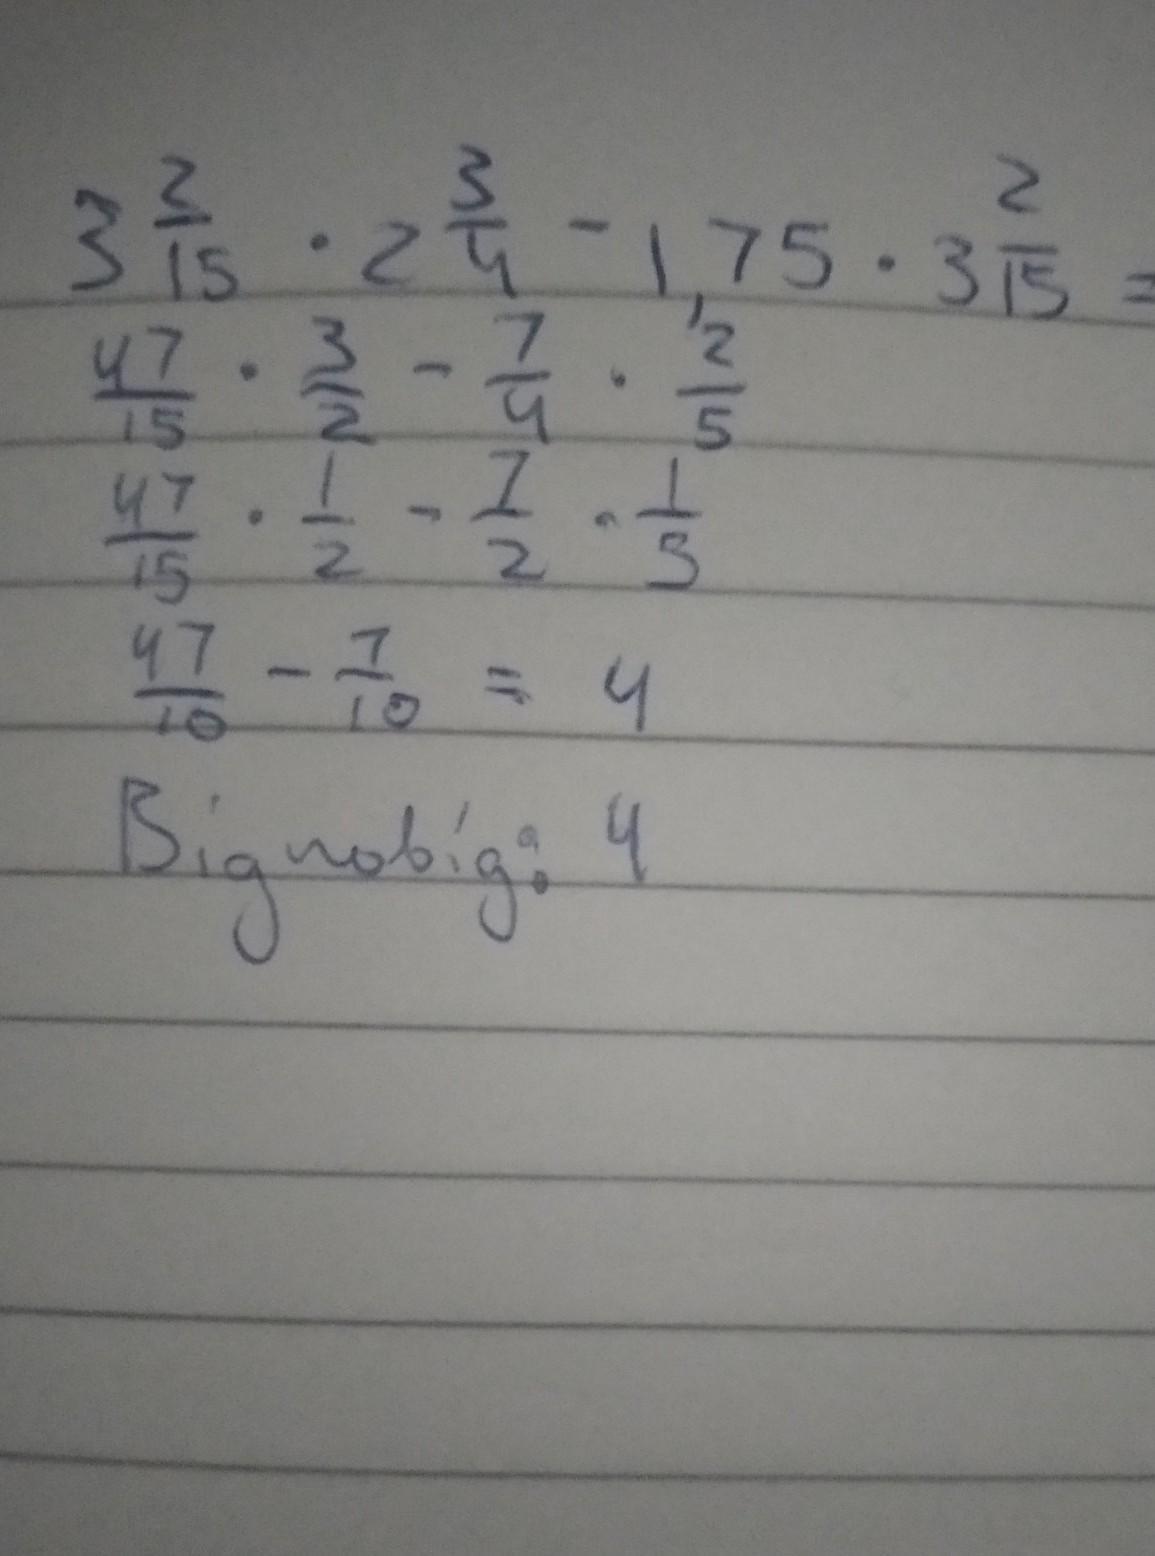 3 2/15 · 2 3/4 - 1,75 · 3 2/15 =
47/15 · 3/2 - 7/4 · 2/5
47/15 · 1/2 - 7/2 · 1/5
47/10 - 7/10 = 4
Bignobig: 4